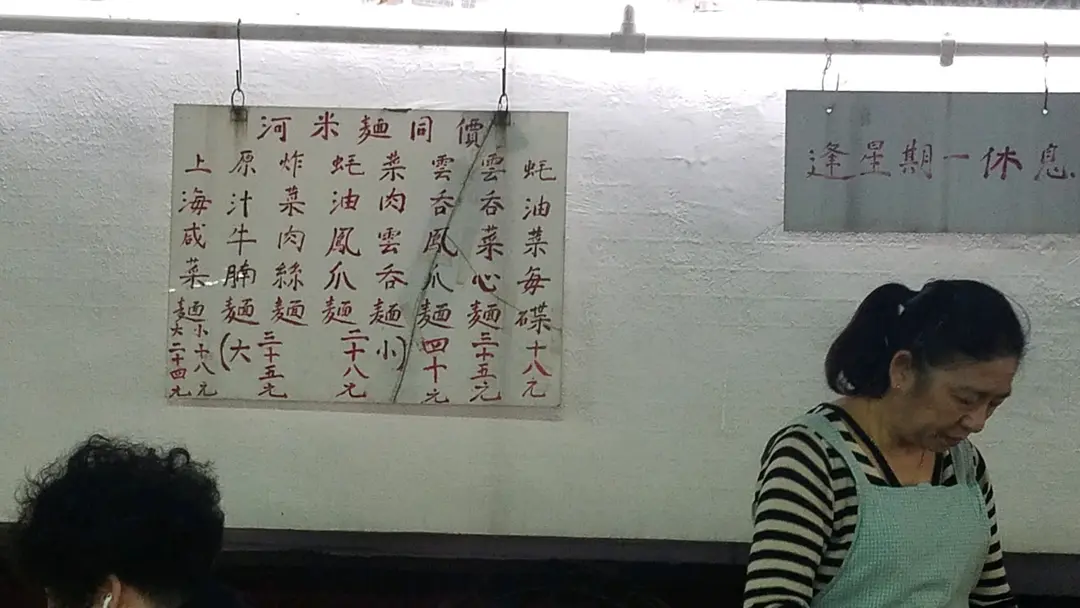 河米麵同價
蚝油菜每碟十八元
雲吞菜心麵三十五元
雲吞鳳爪麵四十元
菜肉雲吞麵小)
蚝油鳳爪麵二十八元
炸菜肉絲麵三十五元
原汁牛腩麵(大
上海咸菜麵小十八元
大二十四元
逢星期一休息.